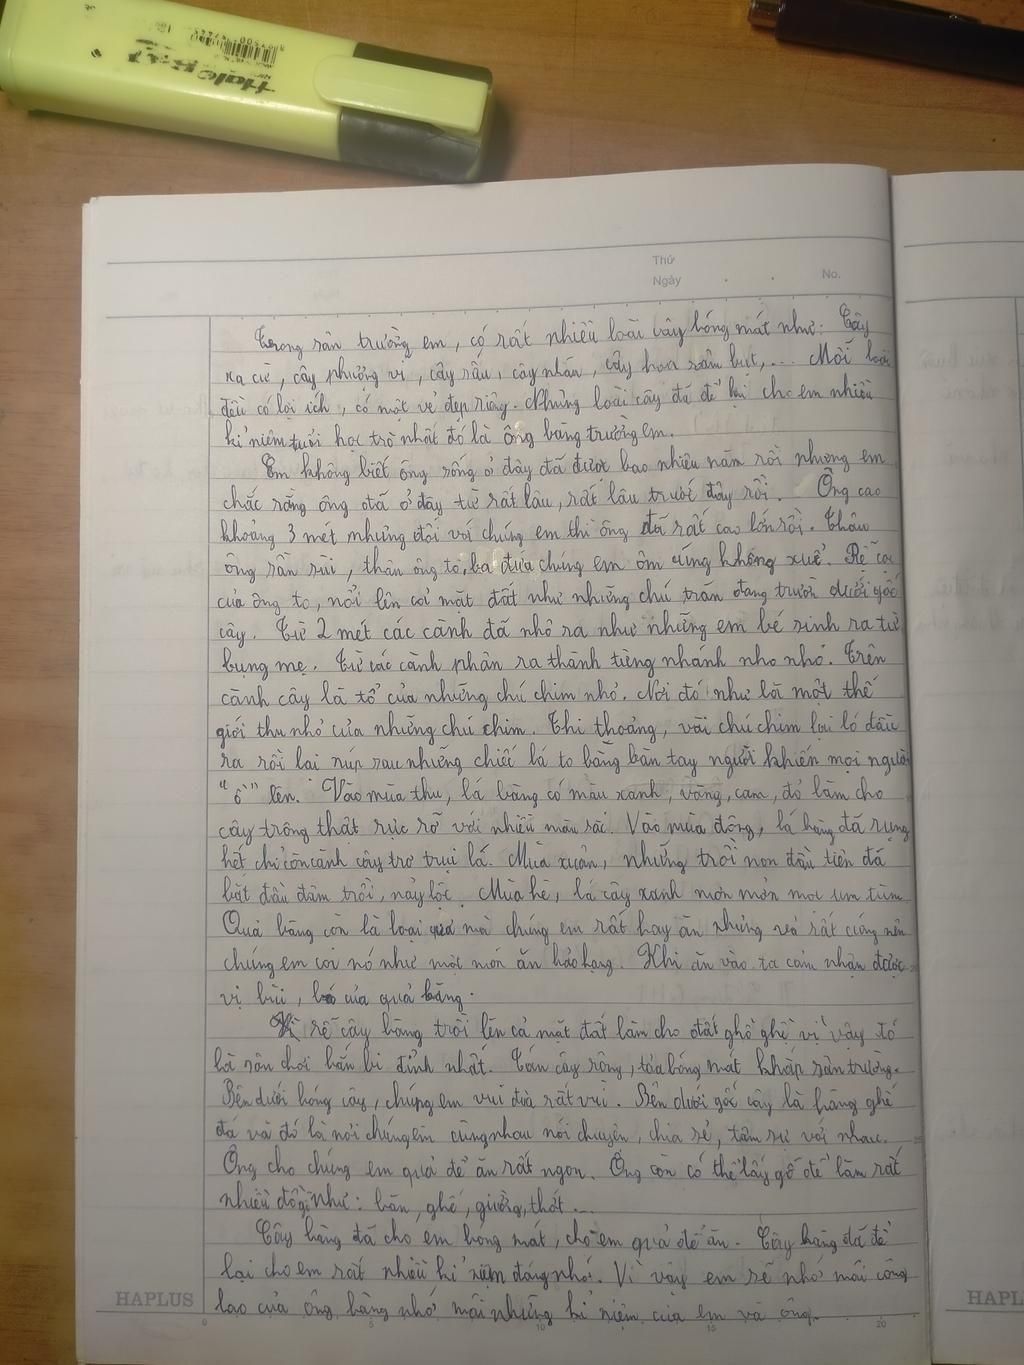 Hale
Thứ
Ngày . . No.
Trong sân trường em, có rất nhiều loài cây bóng mát như: Cây
xà cừ, cây phượng vĩ, cây sấu, cây nhãn, cây hoa râm bụt,... Mỗi loài
đều có lợi ích, có một vẻ đẹp riêng. Những loài cây đã để lại cho em nhiều
kỉ niệm tuổi học trò nhất đó là ông bàng trường em.
Em không biết ông sống ở đây đã được bao nhiêu năm rồi nhưng em
chắc rằng ông đã ở đây từ rất lâu, rất lâu trước đây rồi. Ông cao
khoảng 3 mét nhưng đối với chúng em thì ông đã rất cao lớn rồi. Thân
ông sần sùi, thân ông to, ba đứa chúng em ôm cũng không xuể. Rễ cọc
của ông to, nổi lên cả mặt đất như những chú trăn đang trườn dưới gốc
cây. Từ 2 mét các cành đã nhô ra như những em bé sinh ra từ
bụng mẹ. Từ các cành phân ra thành từng nhánh nho nhỏ. Trên
cành cây là tổ của những chú chim nhỏ. Nơi đó như là một thế
giới thu nhỏ của những chú chim. Thi thoảng, vài chú chim lại ló đầu
ra rồi lại núp sau những chiếc lá to bằng bàn tay người khiến mọi người
"ồ" lên. Vào mùa thu, lá bàng có màu xanh, vàng, cam, đỏ làm cho
cây trông thật rực rỡ với nhiều màu sắc. Vào mùa đông, lá bàng đã rụng
hết chỉ còn cành cây trơ trụi lá. Mùa xuân, những trồi non đầu tiên đã
bắt đầu đâm trồi, nảy lộc. Mùa hè, lá cây xanh mơn mởn mọc um tùm.
Quả bàng còn là loại quả mà chúng em rất hay ăn nhưng vỏ rất cứng nên
chúng em coi nó như một món ăn hảo hạng. Khi ăn vào ta cảm nhận được
vị bùi, béo của quả bàng.
Vì rễ cây bàng trồi lên cả mặt đất làm cho đất ghồ ghề vì vậy đó
là sân chơi bắn bi đỉnh nhất. Tán cây rộng, tỏa bóng mát khắp sân trường.
Bên dưới bóng cây, chúng em vui đùa rất vui. Bên dưới gốc cây là hàng ghế
đá và đó là nơi chúng em cùng nhau nói chuyện, chia sẻ, tâm sự với nhau.
Ông cho chúng em quả để ăn rất ngon. Ông còn có thể lấy gỗ để làm rất
nhiều đồ gỗ như: bàn, ghế, giường, thớt...
Cây bàng đã cho em bóng mát, cho em quả để ăn. Cây bàng đã để
lại cho em rất nhiều kỉ niệm đáng nhớ. Vì vậy em sẽ nhớ mãi công
lao của ông bàng nhớ mãi những kỉ niệm của em và ông.
HAPLUS
0 5 10 15 20
HAPL